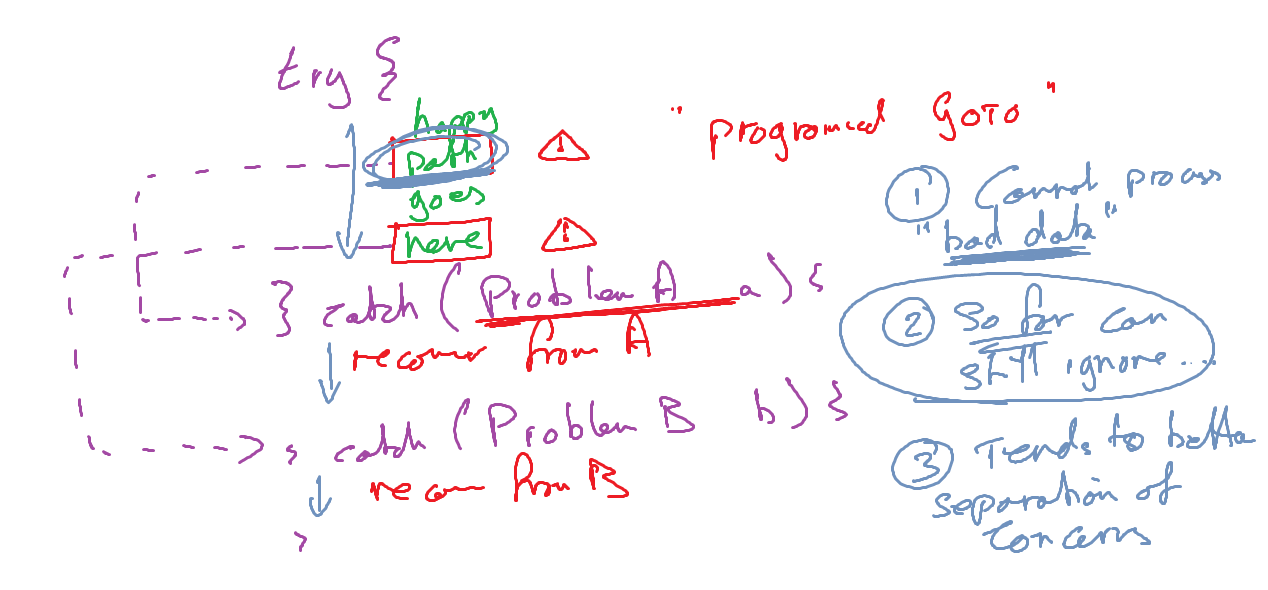 try {
happy
path
goes
here
} catch (Problem A a) {
recover from A
} catch (Problem B b) {
recover from B
}
"programmed GOTO"
1 Cannot process
"bad data"
2 So far can
still ignore...
3 Tends to better
separation of
concerns